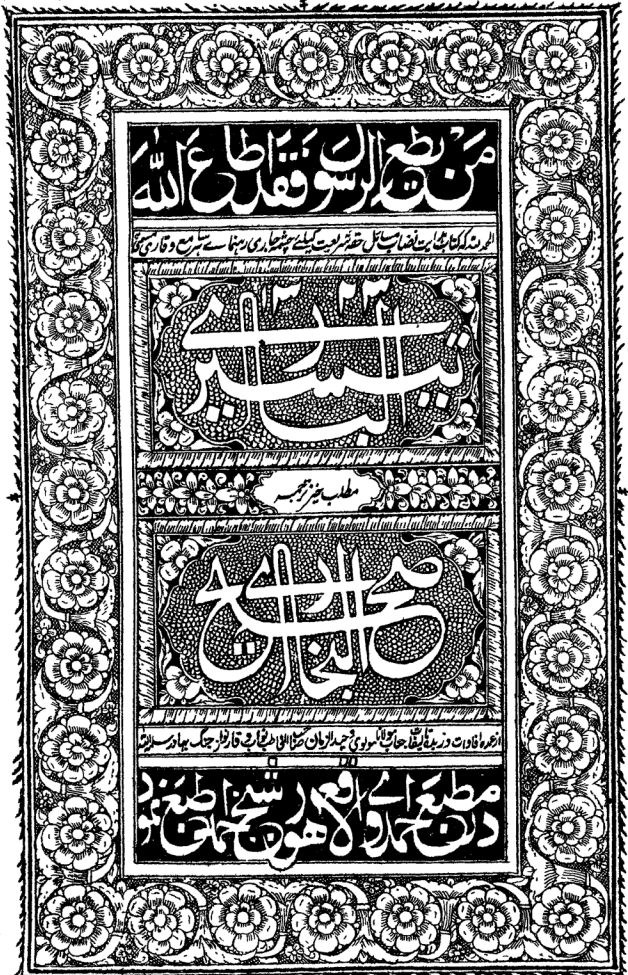 مَنْ يطع الرسول فَقَدْ اطاعَ اللّٰهَ
الحمد للہ کہ کتاب ہدایت نصاب مسائل حقہ شریعت کیلئے چشمہ جاری رہنمائے سامع و قاری
۱۳۲۳
تیسیر الباری
مطلب خیز ترجمہ
صحیح البخاری
از عمدہ افادات و زبدہ تالیفات جناب مولانا مولوی وحید الزمان صاحب نواب وقار نواز جنگ بہادر
در مطبع احمدی واقع لاہور شیخ احمد طبع نمود